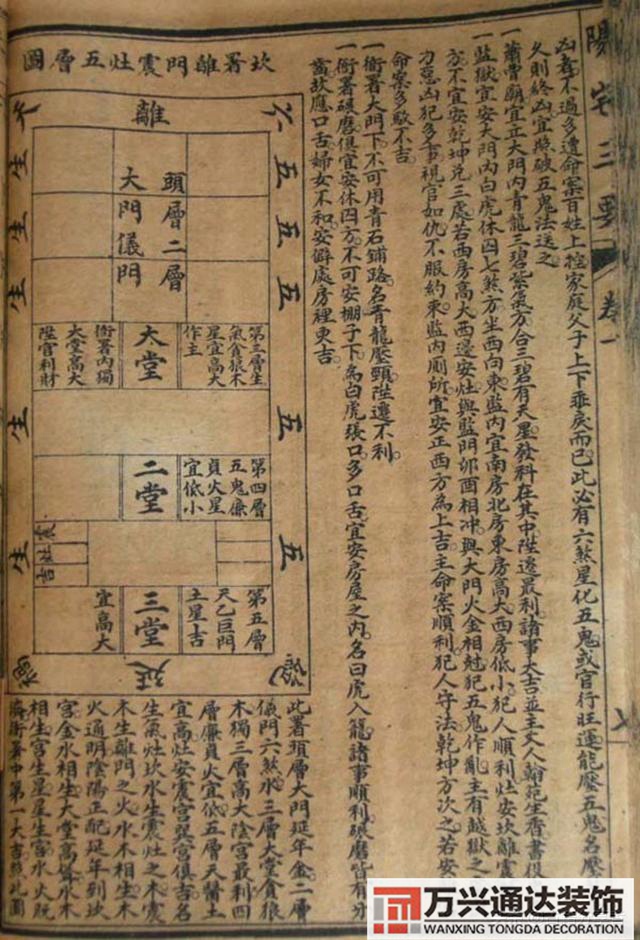 陽宅三要 卷一 七
凶毒不過多遭命案百姓上控家庭父子上下乖戾而已此必有六煞星化五鬼或官行旺運能壓五鬼名壓
久則終凶宜照破五鬼法送之
一蕭曹廟宜立大門內青龍三碧紫氣方合三碧有天星發科在其中陞遷最利諸事大吉並主文人翰苑生香書役
一監獄宜安大門內白虎休囚七煞方坐西向東監內宜南房北房東房高大西房低小犯人順利灶安坎離震
方不宜安乾坤兌三處若西房高大西邊安灶與監門卯酉相冲與大門火金相尅犯五鬼作亂主有越獄之
刁惡凶犯多事視官如仇不服約束監內厠所宜安正西方為上吉主命案順利犯人守法乾坤方次之若安
命案多駁不吉
一衙署大門下不可用青石鋪路名青龍壓頸陞遷不利
一衙署碾磨俱宜安休囚方不可安棚子下為白虎張口多口舌宜安房屋之內名曰虎入籠諸事順利碾磨皆有分
齒故應口舌婦女不和安僻處房裡更吉
坎署離門震灶五層圖
六 離 天
五五五五五
生生生生生
頭層二層
大門儀門
第三層生
氣貪狼木
星宜高大
作主
大堂
衙署內獨
大堂高大
陞官利財
第四層
五鬼廉
貞火星
宜低小
二堂
震灶吉
第五層
天乙巨門
土星吉
三堂
宜高大
延
此署頭層大門延年金二層
儀門六煞水三層大堂貪狼
木獨三層高大陰宮最利四
層廉貞火宜低五層天醫土
宜高灶安震宮巽宮俱吉名
生氣灶坎水生震灶之木震
木生離門之火水木相生木
火通明陰陽正配延年到坎
宮金水相生大堂高聳水木
相生宮生星星生宮水火旣
濟衙署中第一大吉照此圖
万兴通达装饰
WANXING TONGDA DECORATION